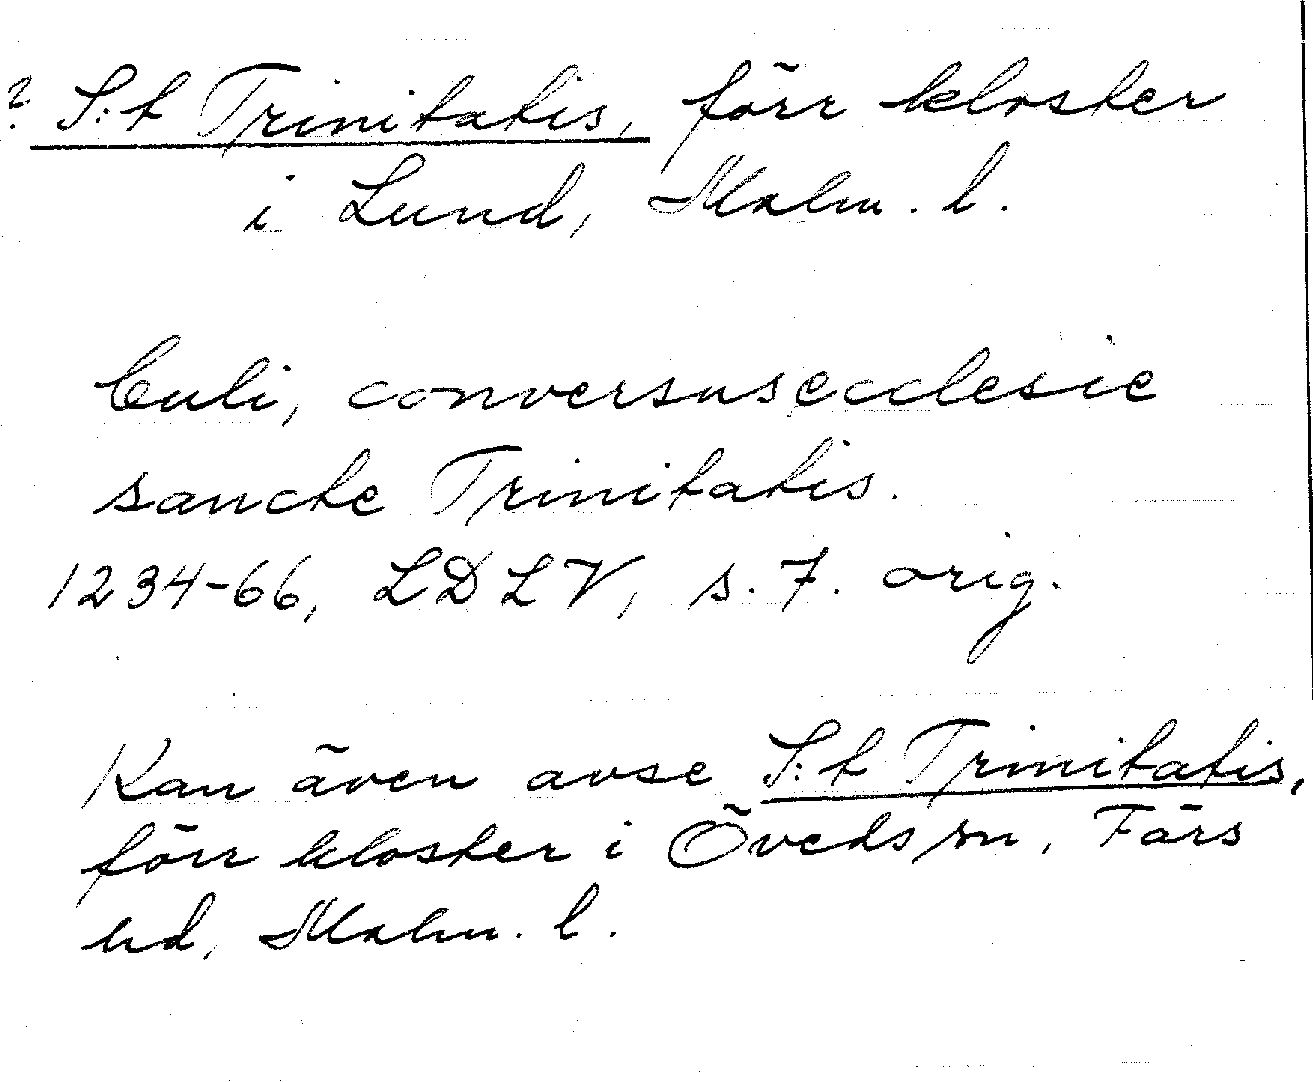 ? S:t Trinitatis, förr kloster
i Lund, Malm. l.
Culi, conversus ecclesie
sancte Trinitatis.
1234-66, LDLV, s. 7. orig.
Kan även avse S:t Trinitatis,
förr kloster i Öveds sn, Färs
hd, Malm. l.